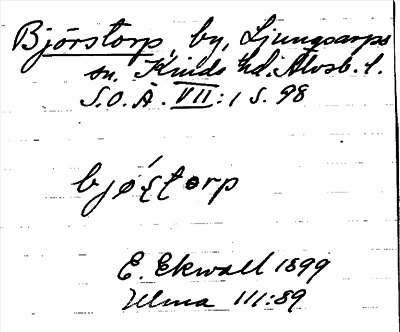 Björstorp, by, Ljungsarps
sn, Kinds hd. Älvsb. l.
S.O.Ä. VII: 1 s. 98
E. Ekwall 1899
Ulma 111:89